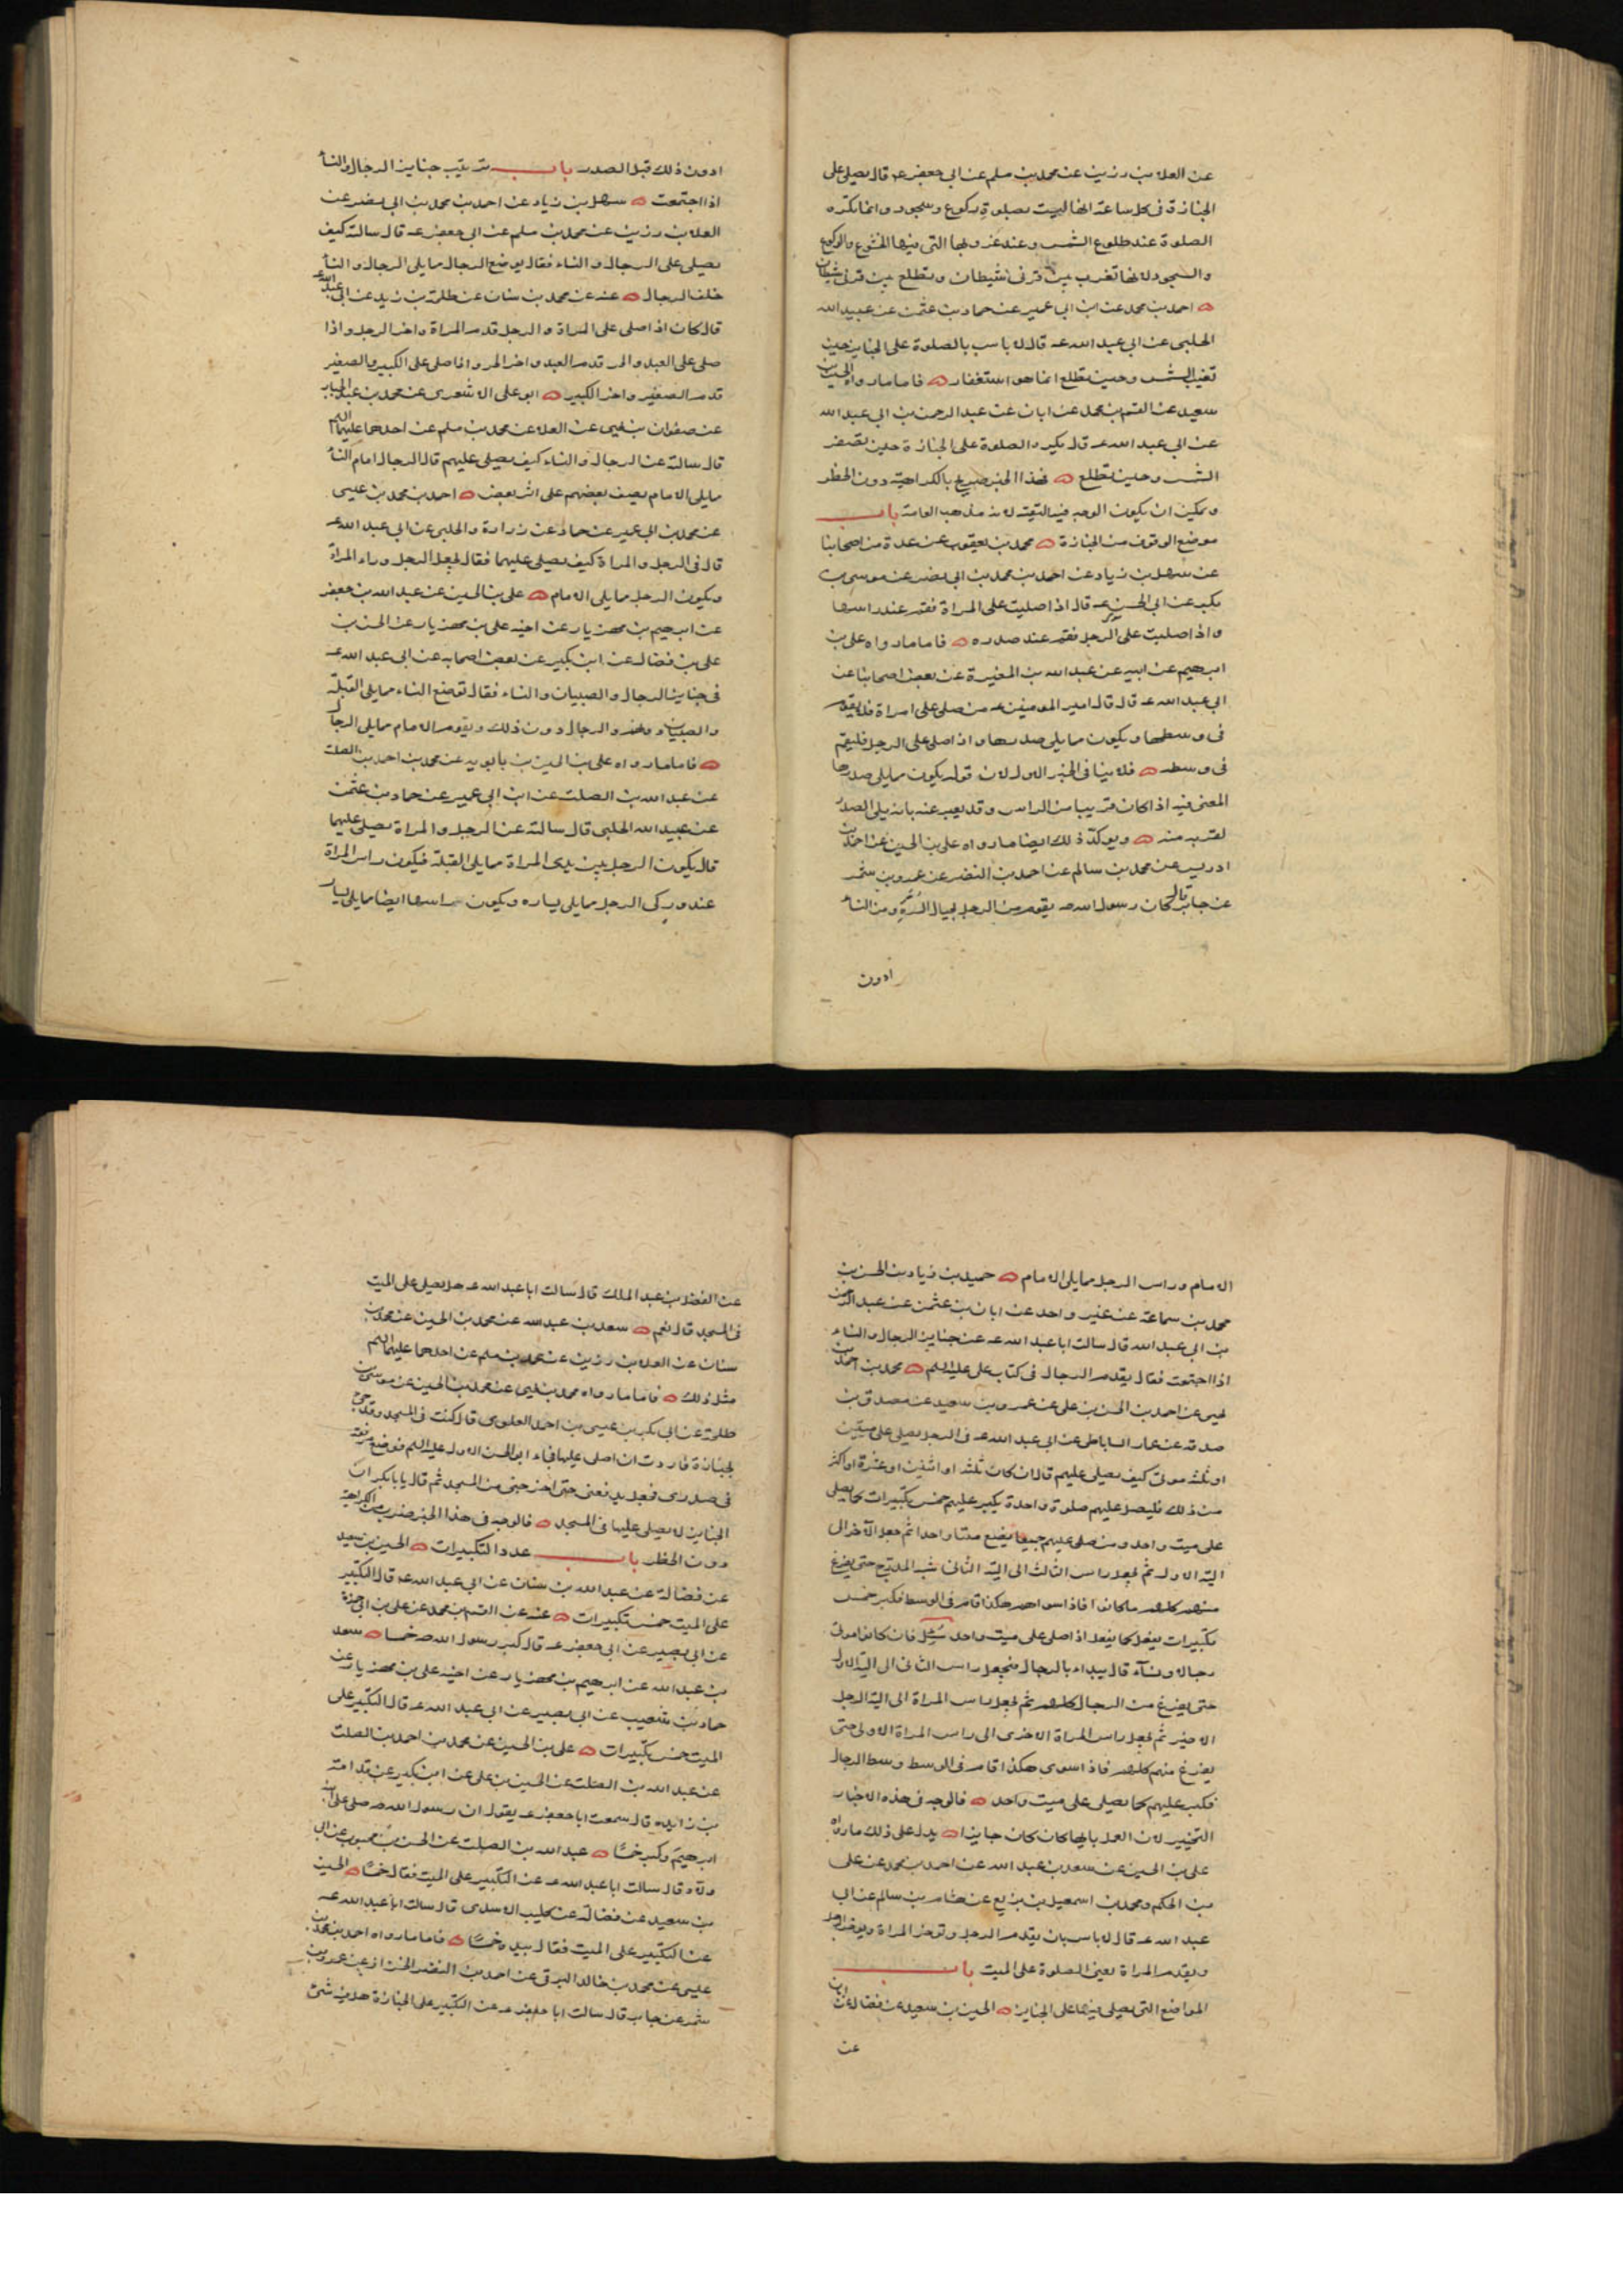 عن العلا بن رزين عن محمد بن مسلم عن ابى جعفر عه قال يصلى على
الجنازة فى كل ساعة انها ليست بصلوة ركوع وسجود وانما تكره
الصلوة عند طلوع الشمس وعند غروبها التى فيها الخشوع والركوع
والسجود لانها تغرب بين قرنى الشيطان وتطلع بين قرنى شيطان
احمد بن محمد عن ابن ابى عمير عن حماد بن عثمن عن عبيد الله
الحلبى عن ابى عبد الله عه قال لا باس بالصلوة على الجنايز حين
تغيب الشمس وحين تطلع انما هو استغفار فاما ما رواه الحسين بن
سعيد عن القسم بن محمد عن ابان عن عبد الرحمن بن ابى عبد الله
عن ابى عبد الله عه قال يكره الصلوة على الجنازة حين تصفر
الشمس وحين تطلع فهذا الخبر صريح بالكراهية دون الحظر
ويمكن ان يكون الوجه فيه التقية لانه مذهب العامة باب
موضع الوقوف من الجنازة محمد بن يعقوب عن عدة من اصحابنا
عن سهل بن زياد عن احمد بن محمد بن ابى نصر عن موسى بن
بكر عن ابى الحسن عه قال اذا صليت على المراة فقم عند راسها
واذا صليت على الرجل فقم عند صدره فاما ما رواه على بن
ابرهيم عن ابيه عن عبد الله بن المغيرة عن بعض اصحابنا عن
ابى عبد الله عه قال قال امير المومنين عه من صلى على امراة فلا يقوم
فى وسطها ويكون مما يلى صدرها واذا صلى على الرجل فليقم
فى وسطه فلا ينافى الخبر الاول لان قوله يكون مما يلى صدرها
المعنى فيه اذا كان قريبا من الراس وقد يعبر عنه بانه يلى الصدر
لقربه منه ويوكد ذلك ايضا ما رواه على بن الحسين عن احمد بن
ادريس عن محمد بن سالم عن احمد بن النضر عن عمرو بن شمر
عن جابر قال كان رسول الله صه يقوم من الرجل بحيال السرة ومن النساء
ادون
ادون ذلك قبل الصدر باب ترتيب جنايز الرجال والنساء
اذا اجتمعت سهل بن زياد عن احمد بن محمد بن ابى نصر عن
العلا بن رزين عن محمد بن مسلم عن ابى جعفر عه قال سالته كيف
يصلى على الرجال والنساء فقال يوضع الرجال مما يلى الرجال والنساء
خلف الرجال عنه عن محمد بن سنان عن طلحة بن زيد عن ابى عبد الله عه
قال كان اذا صلى على المراة والرجل قدم المراة واخر الرجل واذا
صلى على العبد والحر قدم العبد واخر الحر واذا صلى على الكبير والصغير
قدم الصغير واخر الكبير ابو على الاشعرى عن محمد بن عبد الجبار
عن صفوان بن يحيى عن العلا عن محمد بن مسلم عن احدهما عليهما السلم
قال سالته عن الرجال والنساء كيف يصلى عليهم قال الرجال امام النساء
مما يلى الامام يصف بعضهم على اثر بعض احمد بن محمد بن عيسى
عن محمد بن ابى عمير عن حماد عن زرارة والحلبى عن ابى عبد الله عه
قال فى الرجل والمراة كيف يصلى عليهما فقال يجعل الرجل وراء المراة
ويكون الرجل مما يلى الامام على بن الحسين عن عبد الله بن جعفر
عن ابرهيم بن مهزيار عن اخيه على بن مهزيار عن الحسن بن
على بن فضال عن ابن بكير عن بعض اصحابه عن ابى عبد الله عه
فى جنايز الرجال والصبيان والنساء فقال توضع النساء مما يلى القبلة
والصبيان دونهم والرجال دون ذلك ويقوم الامام مما يلى الرجال
فاما ما رواه على بن الحسين بن بابويه عن محمد بن احمد بن الصلت
عن عبد الله بن الصلت عن ابن ابى عمير عن حماد بن عثمن
عن عبيد الله الحلبى قال سالته عن الرجل والمراة يصلى عليهما
قال يكون الرجل بين يدى المراة مما يلى القبلة فيكون راس المراة
عند وركى الرجل مما يلى يساره ويكون راسها ايضا مما يلى يسار
الامام وراس الرجل مما يلى الامام حميد بن زياد بن الحسن بن
محمد بن سماعة عن غير واحد عن ابان بن عثمن عن عبد الرحمن
بن ابى عبد الله قال سالت ابا عبد الله عه عن جنايز الرجال والنساء
اذا اجتمعت فقال يقدم الرجال فى كتاب على عليه السلم محمد بن احمد بن
يحيى عن احمد بن الحسن بن على عن عمرو بن سعيد عن مصدق بن
صدقه عن عمار الساباطى عن ابى عبد الله عه فى الرجل يصلى على ميتين
او ثلثه موتى كيف يصلى عليهم قال ان كان ثلثه او اثنين او عشرة او اكثر
من ذلك فليصل عليهم صلوة واحدة يكبر عليهم خمس تكبيرات كما يصلى
على ميت واحد ومن صلى عليهم جميعا يضع ميتا واحدا ثم جعل الآخر الى
الية الاول ثم يجعل راس الثالث الى الية الثانى شبه المدرج حتى يفرغ
منهم كلهم ما كانوا فاذا سواهم هكذا قام فى الوسط فكبر خمس
تكبيرات يفعل كما يفعل اذا صلى على ميت واحد سئل فان كانوا موتى
رجالا ونساء قال يبداء بالرجال فيجعل راس الثانى الى الية الاول
حتى يفرغ من الرجال كلهم ثم يجعل راس المراة الى الية الرجل
الاخير ثم يجعل راس المراة الاخرى الى راس المراة الاولى حتى
يفرغ منهم كلهم فاذا سوى هكذا قام فى الوسط وسط الرجال
فكبر عليهم كما يصلى على ميت واحد فالوجه فى هذه الاخبار
التخيير لان العمل بايها كان كان جايزا يدل على ذلك ما رواه
على بن الحسين عن سعد بن عبد الله عن احمد بن محمد عن على
بن الحكم ومحمد بن اسمعيل بن بزيع عن هشام بن سالم عن ابى
عبد الله عه قال لا باس بان يقدم الرجل وتوخر المراة ويوخر الرجل
ويقدم المراة يعنى الصلوة على الميت باب
المواضع التى يصلى فيها على الجنايز الحسين بن سعيد عن فضاله عن ابان
عن
عن الفضل بن عبد الملك قال سالت ابا عبد الله عه هل يصلى على الميت
فى المسجد قال نعم سعد بن عبد الله عن محمد بن الحسين عن محمد بن
سنان عن العلا بن رزين عن محمد بن مسلم عن احدهما عليهما السلم
مثل ذلك فاما ما رواه محمد بن يحيى عن محمد بن الحسين عن موسى بن
طلحة عن ابى بكر بن عيسى بن احمد العلوى قال كنت فى المسجد وقد جىء
بجنازة فاردت ان اصلى عليها فجاء ابو الحسن الاول عليه السلم فوضع مرفقه
فى صدرى فجعل يدفعنى حتى اخرجنى من المسجد ثم قال يا بابكر ان
الجنايز لا يصلى عليها فى المسجد فالوجه فى هذا الخبر ضرب من الكراهية
دون الحظر باب عدد التكبيرات الحسين بن سعيد
عن فضالة عن عبد الله بن سنان عن ابى عبد الله عه قال التكبير
على الميت خمس تكبيرات عنه عن القسم بن محمد عن على بن ابى حمزة
عن ابى بصير عن ابى جعفر عه قال كبر رسول الله صه خمسا سعد
بن عبد الله عن ابرهيم بن مهزيار عن اخيه على بن مهزيار عن
حماد بن شعيب عن ابى بصير عن ابى عبد الله عه قال التكبير على
الميت خمس تكبيرات على بن الحسين عن محمد بن احمد بن الصلت
عن عبد الله بن الصلت عن الحسين بن على عن ابن بكير عن قدامة
بن زايده قال سمعت ابا جعفر عه يقول ان رسول الله صه صلى على ابنه
ابرهيم وكبر خمسا عبد الله بن الصلت عن الحسن بن محبوب عن ابى
ولاد قال سالت ابا عبد الله عه عن التكبير على الميت فقال خمسا الحسين
بن سعيد عن فضالة عن كليب الاسدى قال سالت ابا عبد الله عه
عن التكبير على الميت فقال بيده خمسا فاما ما رواه احمد بن محمد بن
عيسى عن محمد بن خالد البرقى عن احمد بن النضر الخزاز عن عمرو بن
شمر عن جابر قال سالت ابا جعفر عه عن التكبير على الجنازة هل فيه شىء